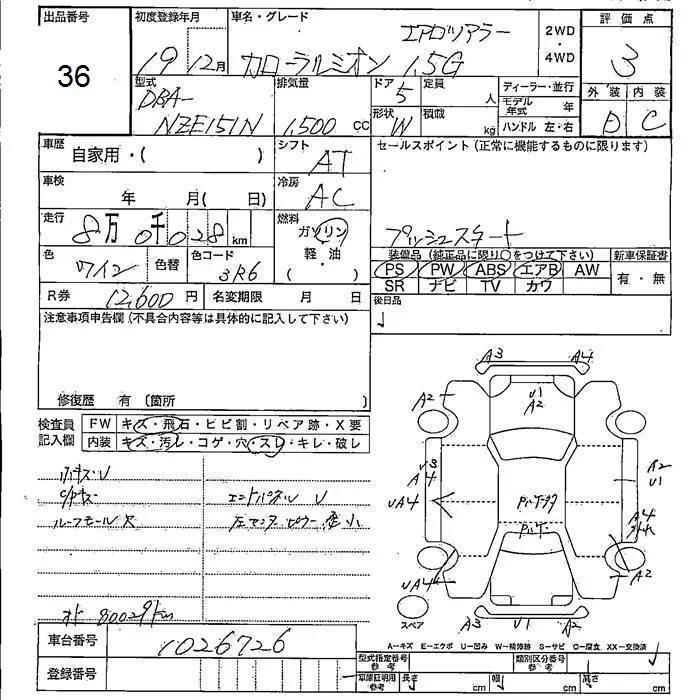 出品番号
36
初度登録年月
19 12月
車名・グレード
エアロツアラー
カローラルミオン 1.5G
2WD
・
4WD
評価点
3
外装 内装
D C
型式
DBA-
NZE151N
排気量
1,500 CC
ドア 5
形状 W
定員 人
積載 kg
ディーラー・並行
モデル年式 年
ハンドル 左・右
車歴 自家用・( )
シフト AT
セールスポイント(正常に機能するものに限ります)
プッシュスタート
車検 年 月( 日)
冷房 AC
走行 8万 0千 028 km
燃料
ガソリン
軽・油
( ・ )
色 ワイン
色替
色コード 3R6
装備品(純正品に限り○をつけて下さい)
PS PW ABS エアB AW
SR ナビ TV カワ
新車保証書
有・無
R券 12,600 円
名変期限 月 日
後日品
注意事項申告欄(不具合内容等は具体的に記入して下さい)
修復歴 有 (箇所 )
検査員記入欄
FW キズ・飛石・ヒビ割・リペア跡・X要
内装 キズ・汚レ・コゲ・穴・スレ・キレ・破レ
C/Pキズ
ルーフモール欠
エンドパネル U
オド 80029km
A3 A4
A2
U1
A2
U3
A4
UA4
A2
U1
A4
UA4
A2
A3 U1 A2
スペア
A-キズ E-エクボ U-凹み W-補修跡 S-サビ C-腐食 XX-交換済
車台番号 1026726
登録番号
型式指定番号 参考
類別区分番号 参考
車庫証明用 参考
長さ cm 幅 cm 高さ cm